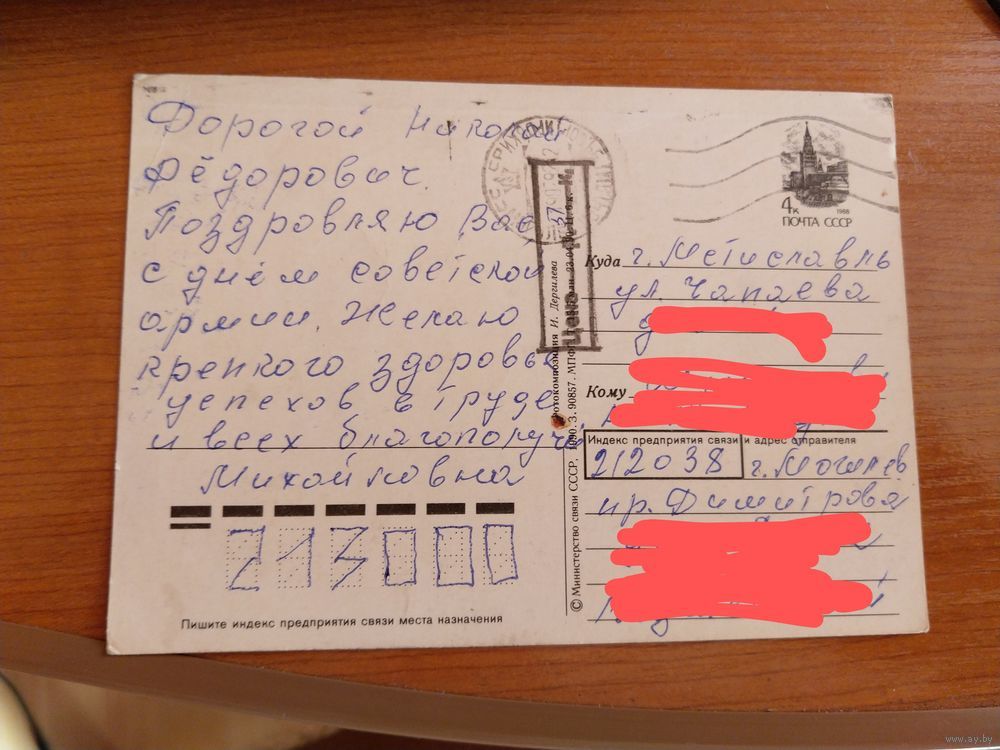 Дорогой Николай
Фёдорович.
Поздравляю Вас
с днём советской
армии. Желаю
крепкого здоровья
успехов в труде
и всех благополучий
Михайловна
213000
Пишите индекс предприятия связи места назначения
4к 1988
ПОЧТА СССР
Цена
37
© Министерство связи СССР, 1990. З. 90857. МПФГ
Фотокомпозиция И. Дергилева
Куда г. Мстиславль
ул. Чапаева
Кому
Индекс предприятия связи и адрес отправителя
212038 г. Могилев
пр. Димитрова
www.ay.by